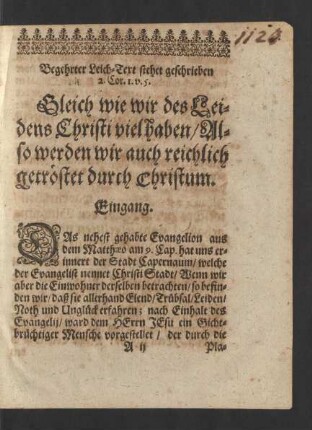 1123
Begehrter Leich-Text stehet geschrieben
2. Cor. 1. v. 5.
Gleich wie wir des Lei-
dens Christi viel haben/ Al-
so werden wir auch reichlich
getröstet durch Christum.
Eingang.
DAs nehest gehabte Evangelion aus
dem Matthæo am 9. Cap. hat uns er-
innert der Stadt Capernaum/ welche
der Evangelist nennet Christi Stadt/ Wenn wir
aber die Einwohner derselben betrachten/ so befin-
den wir/ daß sie allerhand Elend/ Trübsal/ Leiden/
Noth und Unglück erfahren; nach Einhalt des
Evangelij/ ward dem HErrn JEsu ein Gicht-
brüchtiger Mensche vorgestellet/ der durch die
A ij Pla-